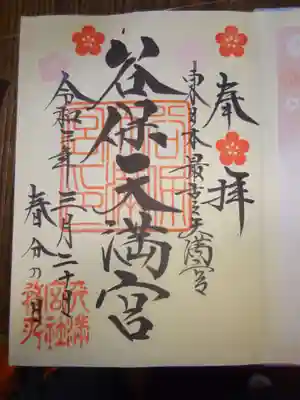 奉拝
東日本最古天満宮
谷保天満宮
令和三年三月二十日
春分の日